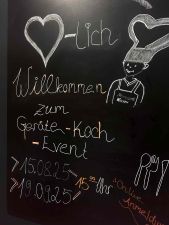 -lich
Willkommen
zum
Geräte-Koch
-Event
>15.08.25
>19.09.25
15 Uhr
Online
Anmeldung